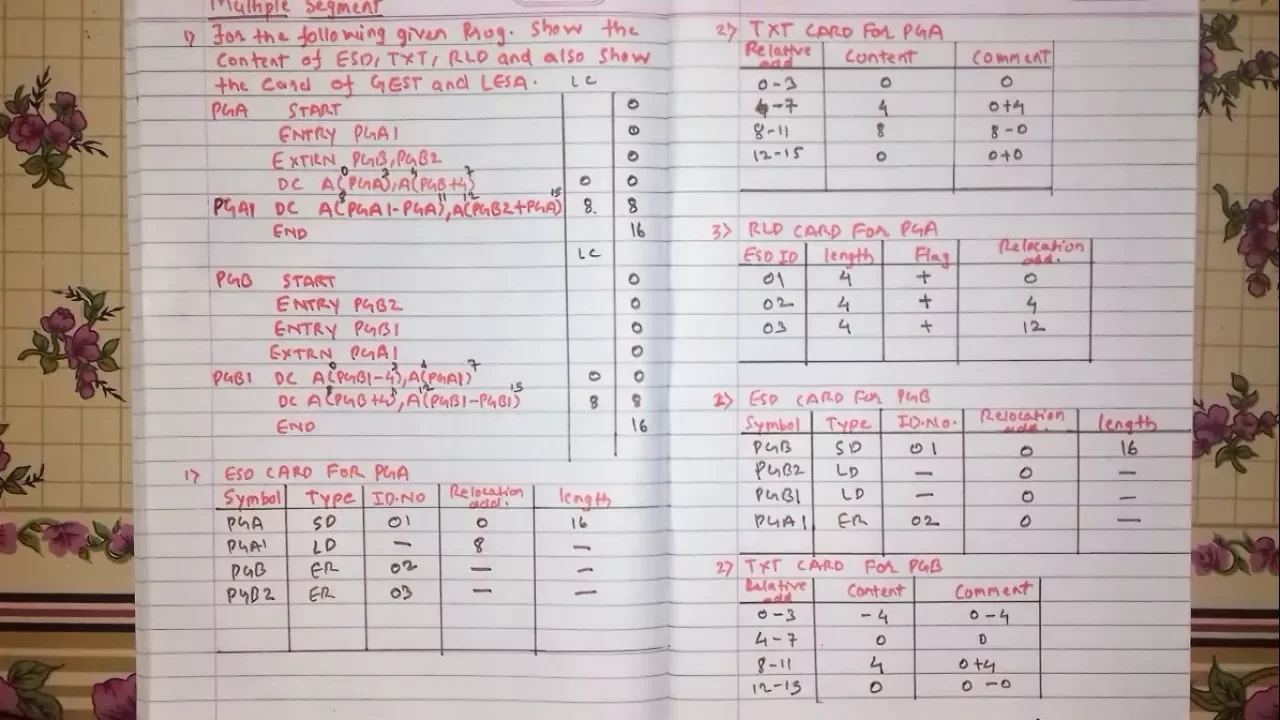 Multiple Segment
1) For the following given Prog. Show the
content of ESD, TXT, RLD and also show
the card of GEST and LESA. LC
PGA START 0
ENTRY PGA1 0
EXTRN PGB, PGB2 0
0 3 4 7
DC A(PGA), A(PGB+4) 0 0
8 11 12 15
PGA1 DC A(PGA1-PGA), A(PGB2+PGA) 8. 8
END 16
LC
PGB START 0
ENTRY PGB2 0
ENTRY PGB1 0
EXTRN PGA1 0
0 3 4 7
PGB1 DC A(PGB1-4), A(PGA1) 0 0
8 12 15
DC A(PGB+4), A(PGB1-PGB1) 8 8
END 16
1) ESD CARD FOR PGA
Symbol Type ID.NO Relocation add. length
PGA SD 01 0 16
PGA1 LD — 8 —
PGB ER 02 — —
PGB2 ER 03 — —
2) TXT CARD FOR PGA
Relative add Content Comment
0-3 0 0
4-7 4 0+4
8-11 8 8-0
12-15 0 0+0
3) RLD CARD FOR PGA
ESD ID length Flag Relocation add.
01 4 + 0
02 4 + 4
03 4 + 12
2) ESD CARD FOR PGB
Symbol Type ID.No. Relocation add. length
PGB SD 01 0 16
PGB2 LD — 0 —
PGB1 LD — 0 —
PGA1 ER 02 0 —
2) TXT CARD FOR PGB
Relative add Content Comment
0-3 -4 0-4
4-7 0 0
8-11 4 0+4
12-15 0 0-0